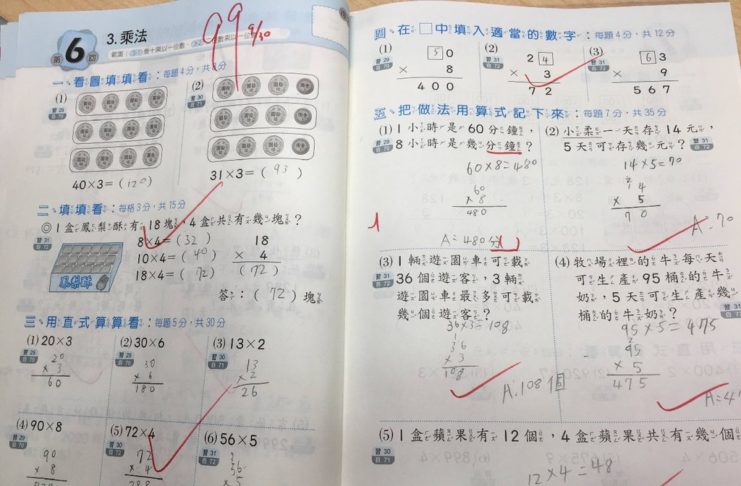 第6回
3. 乘法
99 9/30
一 看圖填填看：每題4分，共8分
(1)
(2)
40×3=(120)
31×3=(93)
二 填填看：每格3分，共15分
◎1盒鳳梨酥有18塊，4盒共有幾塊？
8×4=(32)
10×4=(40)
18×4=(72)
18
× 4
(72)
鳳梨酥
答：(72)塊
三 用直式算算看：每題5分，共30分
(1) 20×3
20
× 3
60
(2) 30×6
30
× 6
180
(3) 13×2
13
× 2
26
(4) 90×8
90
× 8
(5) 72×4
72
× 4
(6) 56×5
四 在□中填入適當的數字：每題4分，共12分
(1)
5 0
× 8
400
(2)
2 4
× 3
72
(3)
6 3
× 9
567
五 把做法用算式記下來：每題7分，共35分
(1) 1小時是60分鐘，
8小時是幾分鐘？
60×8=480
60
× 8
480
A=480分
1
(2) 小柔一天存14元，
5天可存幾元？
14×5=70
× 5
70
A=70
(3) 1輛遊園車可載
36個遊客，3輛
遊園車最多可載
幾個遊客？
36×3=108
1
36
× 3
108
A.108個
(4) 牧場裡的牛每天
可生產95桶的牛
奶，5天可生產幾
桶的牛奶？
95×5=475
95
× 5
475
(5) 1盒蘋果有12個，4盒蘋果共有幾個
12×4=48